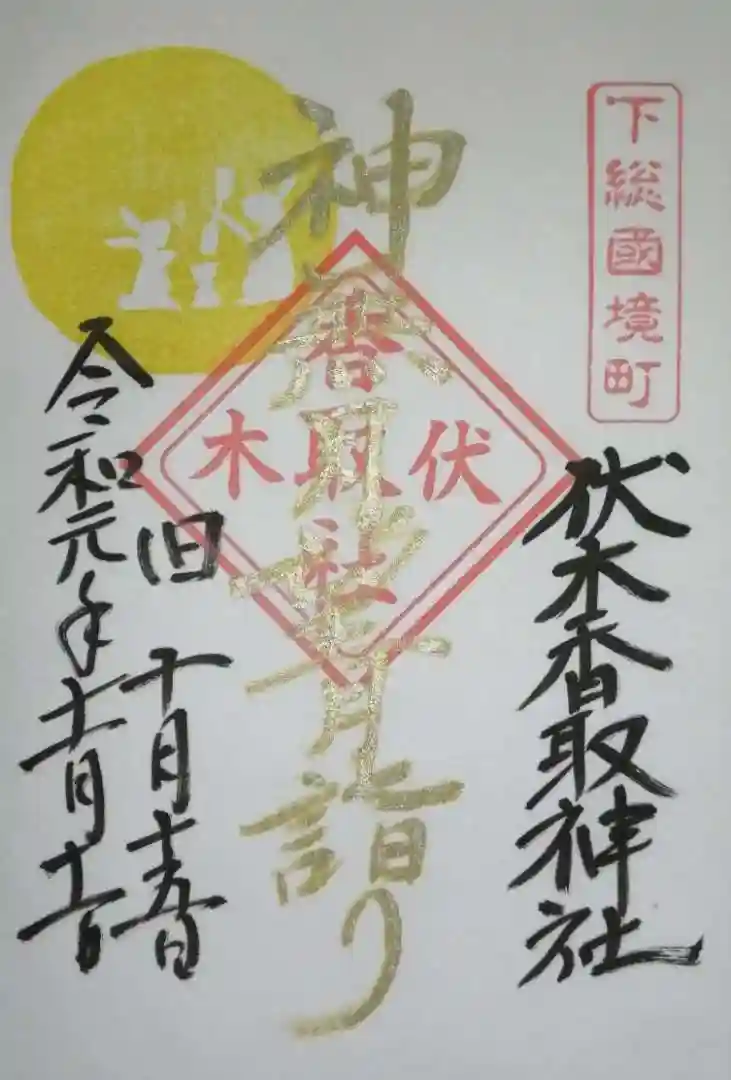 下総國境町
伏木香取神社
神無月望月詣り
伏木
香取社
旧 十月十五日
令和元年十一月十一日